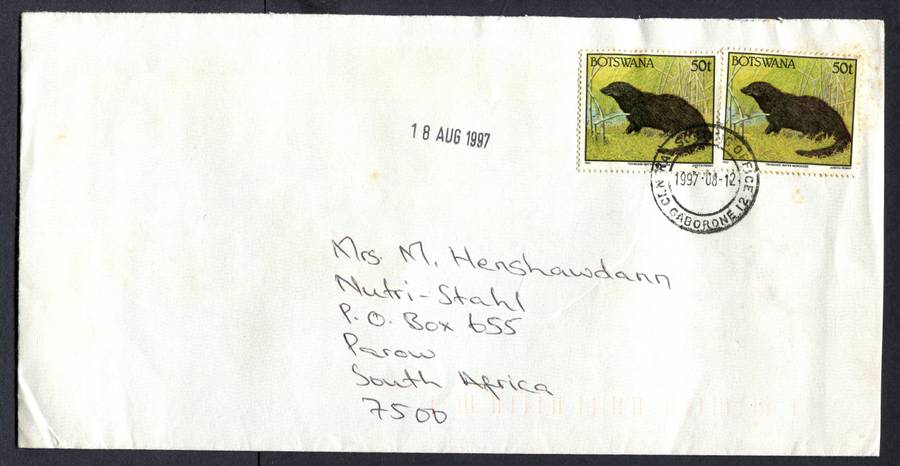 BOTSWANA 50t
BOTSWANA 50t
18 AUG 1997
CENTRAL SORTING OFFICE
1997-08-12
GABORONE 12
Mrs. M. Henshawdann
Nutri-Stahl
P.O. Box 655
Parow
South Africa
7500